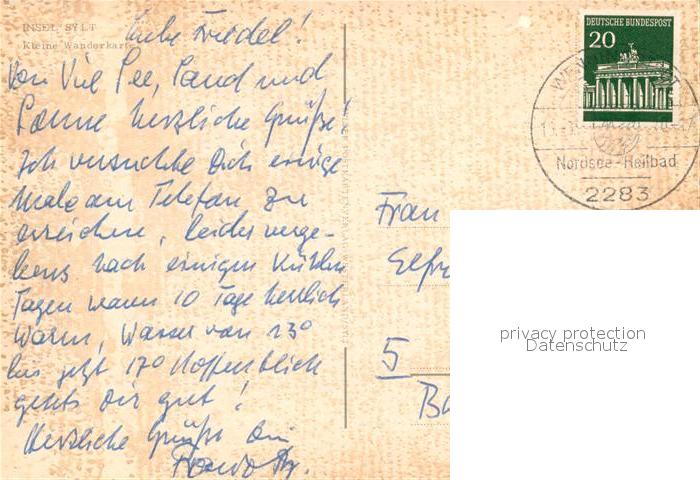 INSEL SYLT
Kleine Wanderkarte
Liebe Friedel!
Von Viel See, Sand und
Sonne herzliche Grüße!
Ich versuchte Dich einige
Male am Telefon zu
erreichen, leider verge-
bens. Nach einigen kühlen
Tagen waren 10 Tage herrlich
warm, Wasser von 13°
bis jetzt 17° Hoffentlich
gehts Dir gut!
Herzliche Grüße Dein
DEUTSCHE BUNDESPOST
20
Nordsee-Heilbad
2283
Frau
Elfr
5
privacy protection
Datenschutz